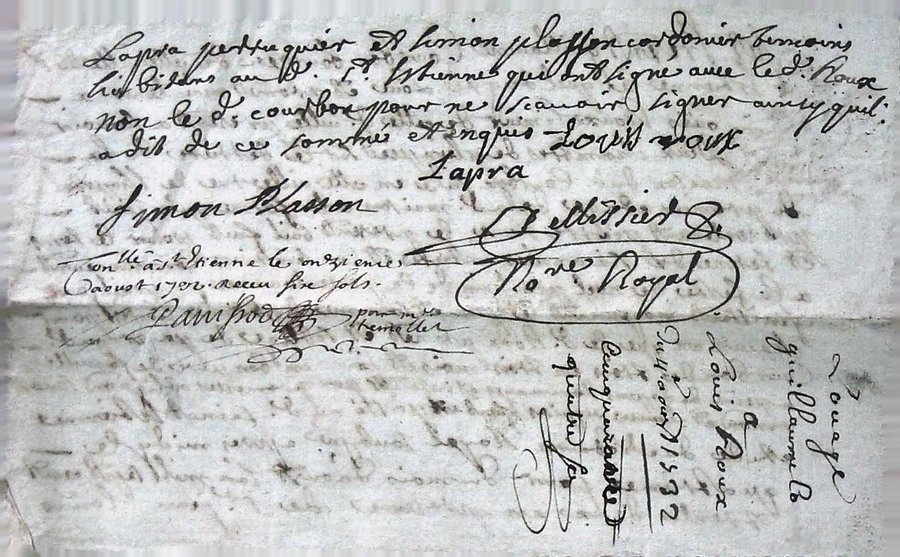 Lapra perruquier et simon plasson cordonier temoins
habitans au d. st. Estienne qui ont signé avec le d. Roux
non le d. courbon pour ne scavoir signer ainsy quil
a dit de ce sommé et enquis Louis roux
Lapra
Simon Plasson
Messier
No.re Royal
Con.llé a st Etienne le onzieme
aoust 1732 receu six sols.
pour mr
Louage
guillaume
a
Louis Roux
du 11 aoust 1732
quatre